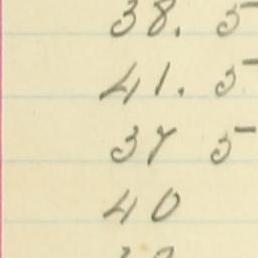 38. 5
41. 5
37 5
40